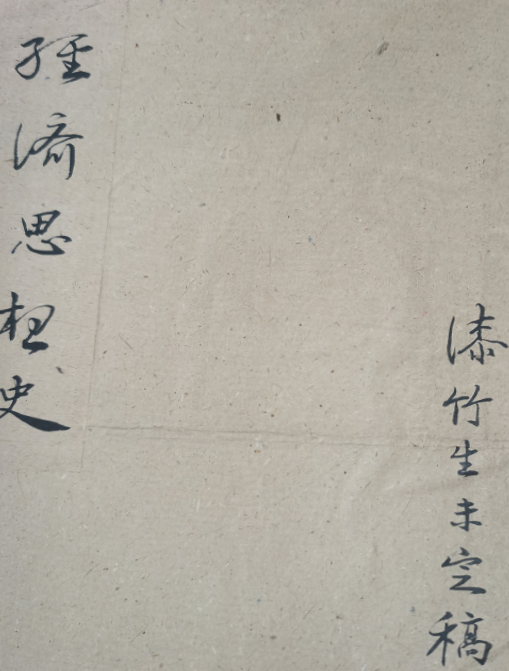 經濟思想史
漆竹生未定稿